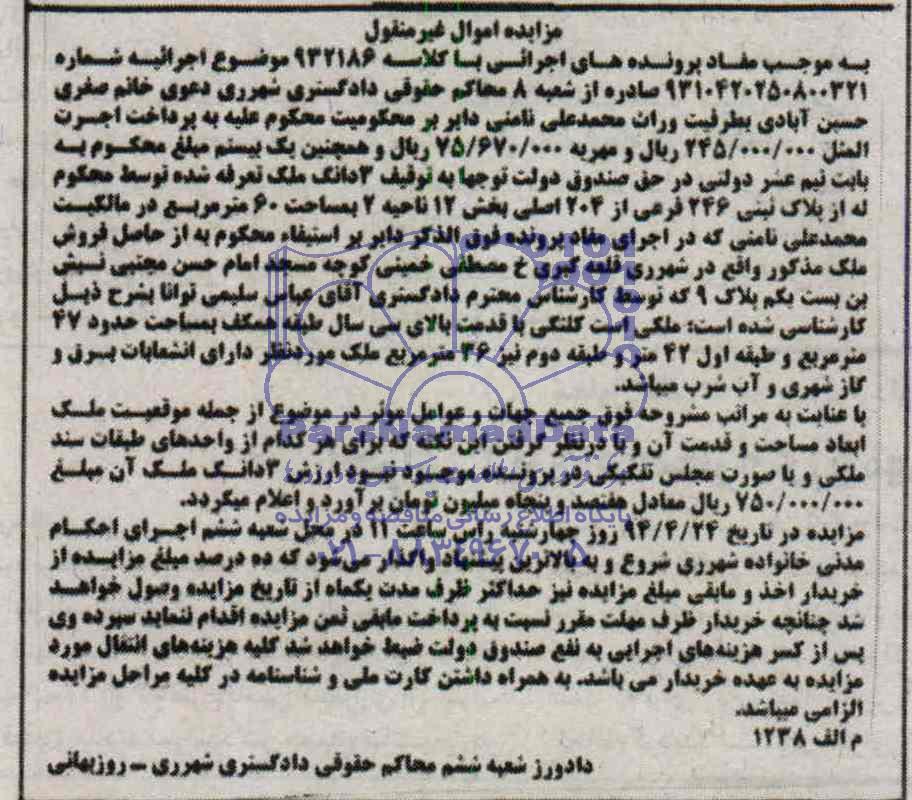 مزایده اموال غیرمنقول
به موجب مفاد پرونده های اجرائی با کلاسه ۹۳۲۱۸۶ موضوع اجرائیه شماره
۹۳۱۰۴۲۰۲۵۰۸۰۰۳۲۱ صادره از شعبه ۸ محاکم حقوقی دادگستری شهرری دعوی خانم صغری
حسین آبادی بطرفیت وراث محمدعلی نامنی دایر بر محکومیت محکوم علیه به پرداخت اجرت
المثل ۲۴۵/۰۰۰/۰۰۰ ریال و مهریه ۷۵/۶۷۰/۰۰۰ ریال و همچنین یک بیستم مبلغ محکوم به
بابت نیم عشر دولتی در حق صندوق دولت توجها به توقیف ۳دانگ ملک تعرفه شده توسط محکوم
له از پلاک ثبتی ۲۴۶ فرعی از ۲۰۴ اصلی بخش ۱۲ ناحیه ۲ بمساحت ۶۰ مترمربع در مالکیت
محمدعلی نامنی که در اجرای مفاد پرونده فوق الذکر دایر بر استیفاء محکوم به از حاصل فروش
ملک مذکور واقع در شهرری قلعه گبری خ مصطفی خمینی کوچه مسجد امام حسن مجتبی نبش
بن بست یکم پلاک ۹ که توسط کارشناس محترم دادگستری آقای عباس سلیمی توانا بشرح ذیل
کارشناسی شده است؛ ملکی است کلنگی با قدمت بالای سی سال طبقه همکف بمساحت حدود ۴۷
مترمربع و طبقه اول ۴۲ متر و طبقه دوم نیز ۳۶ مترمربع ملک موردنظر دارای انشعابات برق و
گاز شهری و آب شرب میباشد.
با عنایت به مراتب مشروحه فوق جمیع جهات و عوامل موثر در موضوع از جمله موقعیت ملک
ابعاد مساحت و قدمت آن و با درنظر گرفتن این نکته که برای هر کدام از واحدهای طبقات سند
ملکی و یا صورت مجلس تفکیکی در پرونده موجود نبود ارزش ۳دانگ ملک آن مبلغ
۷۵۰/۰۰۰/۰۰۰ ریال معادل هفتصد و پنجاه میلیون تومان برآورد و اعلام میگردد.
مزایده در تاریخ ۹۴/۴/۲۴ روز چهارشنبه راس ساعت ۱۱ در محل شعبه ششم اجرای احکام
مدنی خانواده شهرری شروع و به بالاترین پیشنهاد واگذار می‌شود که ده درصد مبلغ مزایده از
خریدار اخذ و مابقی مبلغ مزایده نیز حداکثر ظرف مدت یکماه از تاریخ مزایده وصول خواهد
شد چنانچه خریدار ظرف مهلت مقرر نسبت به پرداخت مابقی ثمن مزایده اقدام ننماید سپرده وی
پس از کسر هزینه‌های اجرایی به نفع صندوق دولت ضبط خواهد شد کلیه هزینه‌های انتقال مورد
مزایده به عهده خریدار می باشد. به همراه داشتن کارت ملی و شناسنامه در کلیه مراحل مزایده
الزامی میباشد.
م الف ۱۲۳۸
دادورز شعبه ششم محاکم حقوقی دادگستری شهرری ــ روزبهانی
ParsNamadData
پایگاه اطلاع رسانی مناقصه و مزایده